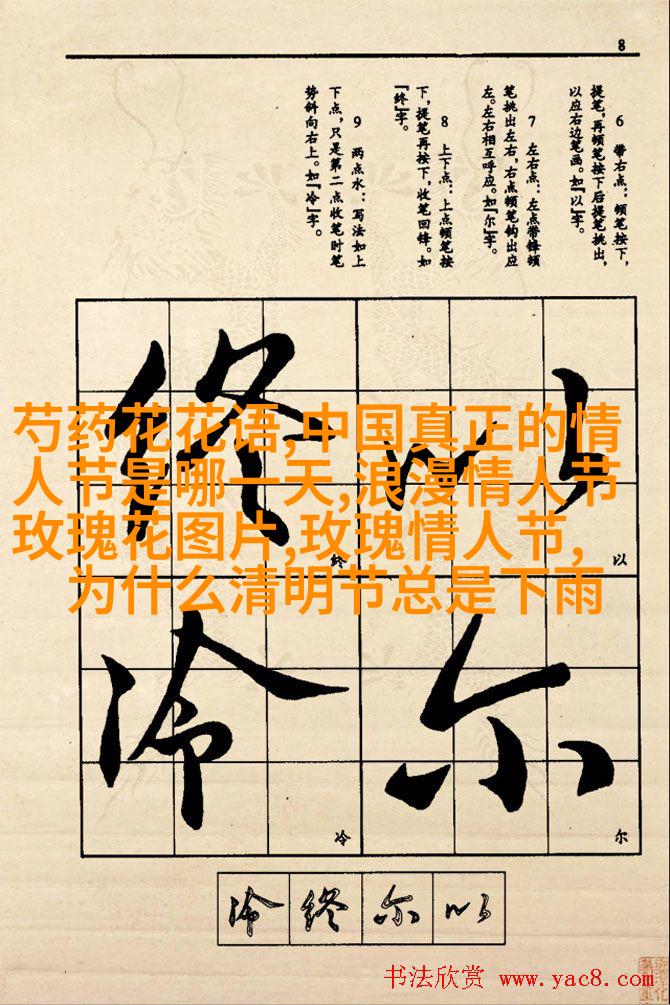 8
6 带右点：顿笔按下，
提笔，再顿笔按下后提笔挑出，
以应右边笔画。如『以』字。
7 左右点：左点带锋顿
笔挑出左右，右点顿笔钩出应
左。左右相互呼应。如『尔』字。
8 上下点：上点顿笔按
下，提笔再按下，收笔回锋。如
『终』字。
9 两点水：写法如上
下点，只是第二点收笔时笔
势斜向右上。如『冷』字。
芍药花花语,中国真正的情
人节是哪一天,浪漫情人节
玫瑰花图片,玫瑰情人节,
为什么清明节总是下雨
以
以
尔
尔
终
终
冷
冷
冷终尔以
书法欣赏 www.yac8.com